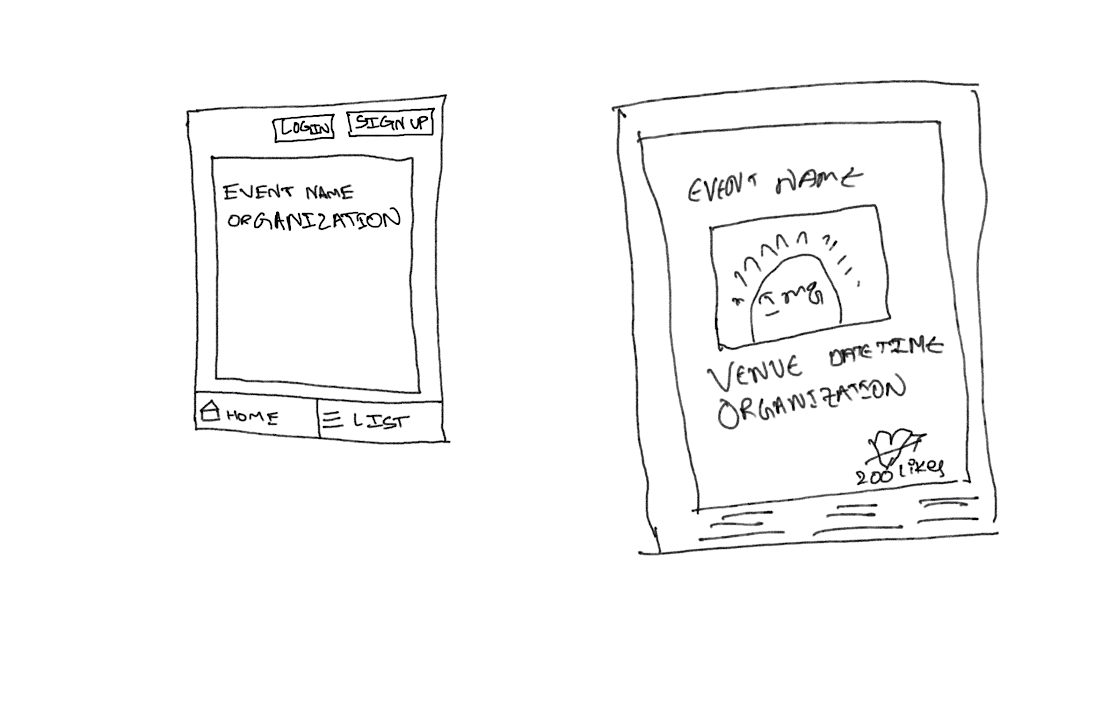 LOGIN SIGN UP
EVENT NAME
ORGANIZATION
HOME LIST
EVENT NAME
IMG
VENUE DATETIME
ORGANIZATION
200 LIKES